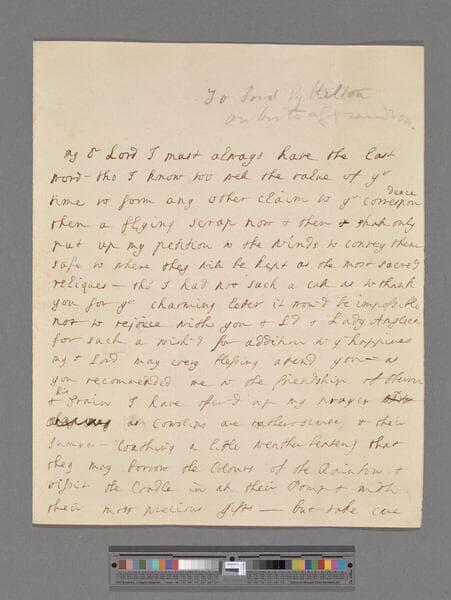 To Lord Lyttelton
on birth of grandson.
my Dr Lord I must always have the last
word - tho I know too well the value of yr
time to form any other claim to yr correspon
dence
then a flying scrap now & then & shall only
put up my petition to the Winds to convey them
safe to where they will be kept as the most sacred
reliques - tho I had not such a call as to thank
you for yr charming letter it wou'd be impossible
not to rejoice with you & Ld & Lady Anglesea
for such a wish'd for addition to yr happiness
my Dr Lord may every blessing attend you - as
you recommended me to the friendship of Oberon
& his Train I have offer'd up my prayer
as Cowslips are rather scarce & their
Summer Cloathing a little weather beaten, that
they may borrow the Colours of the Rainbow &
vissit the Cradle in all their Pomp & with
their most precious gifts - but take care